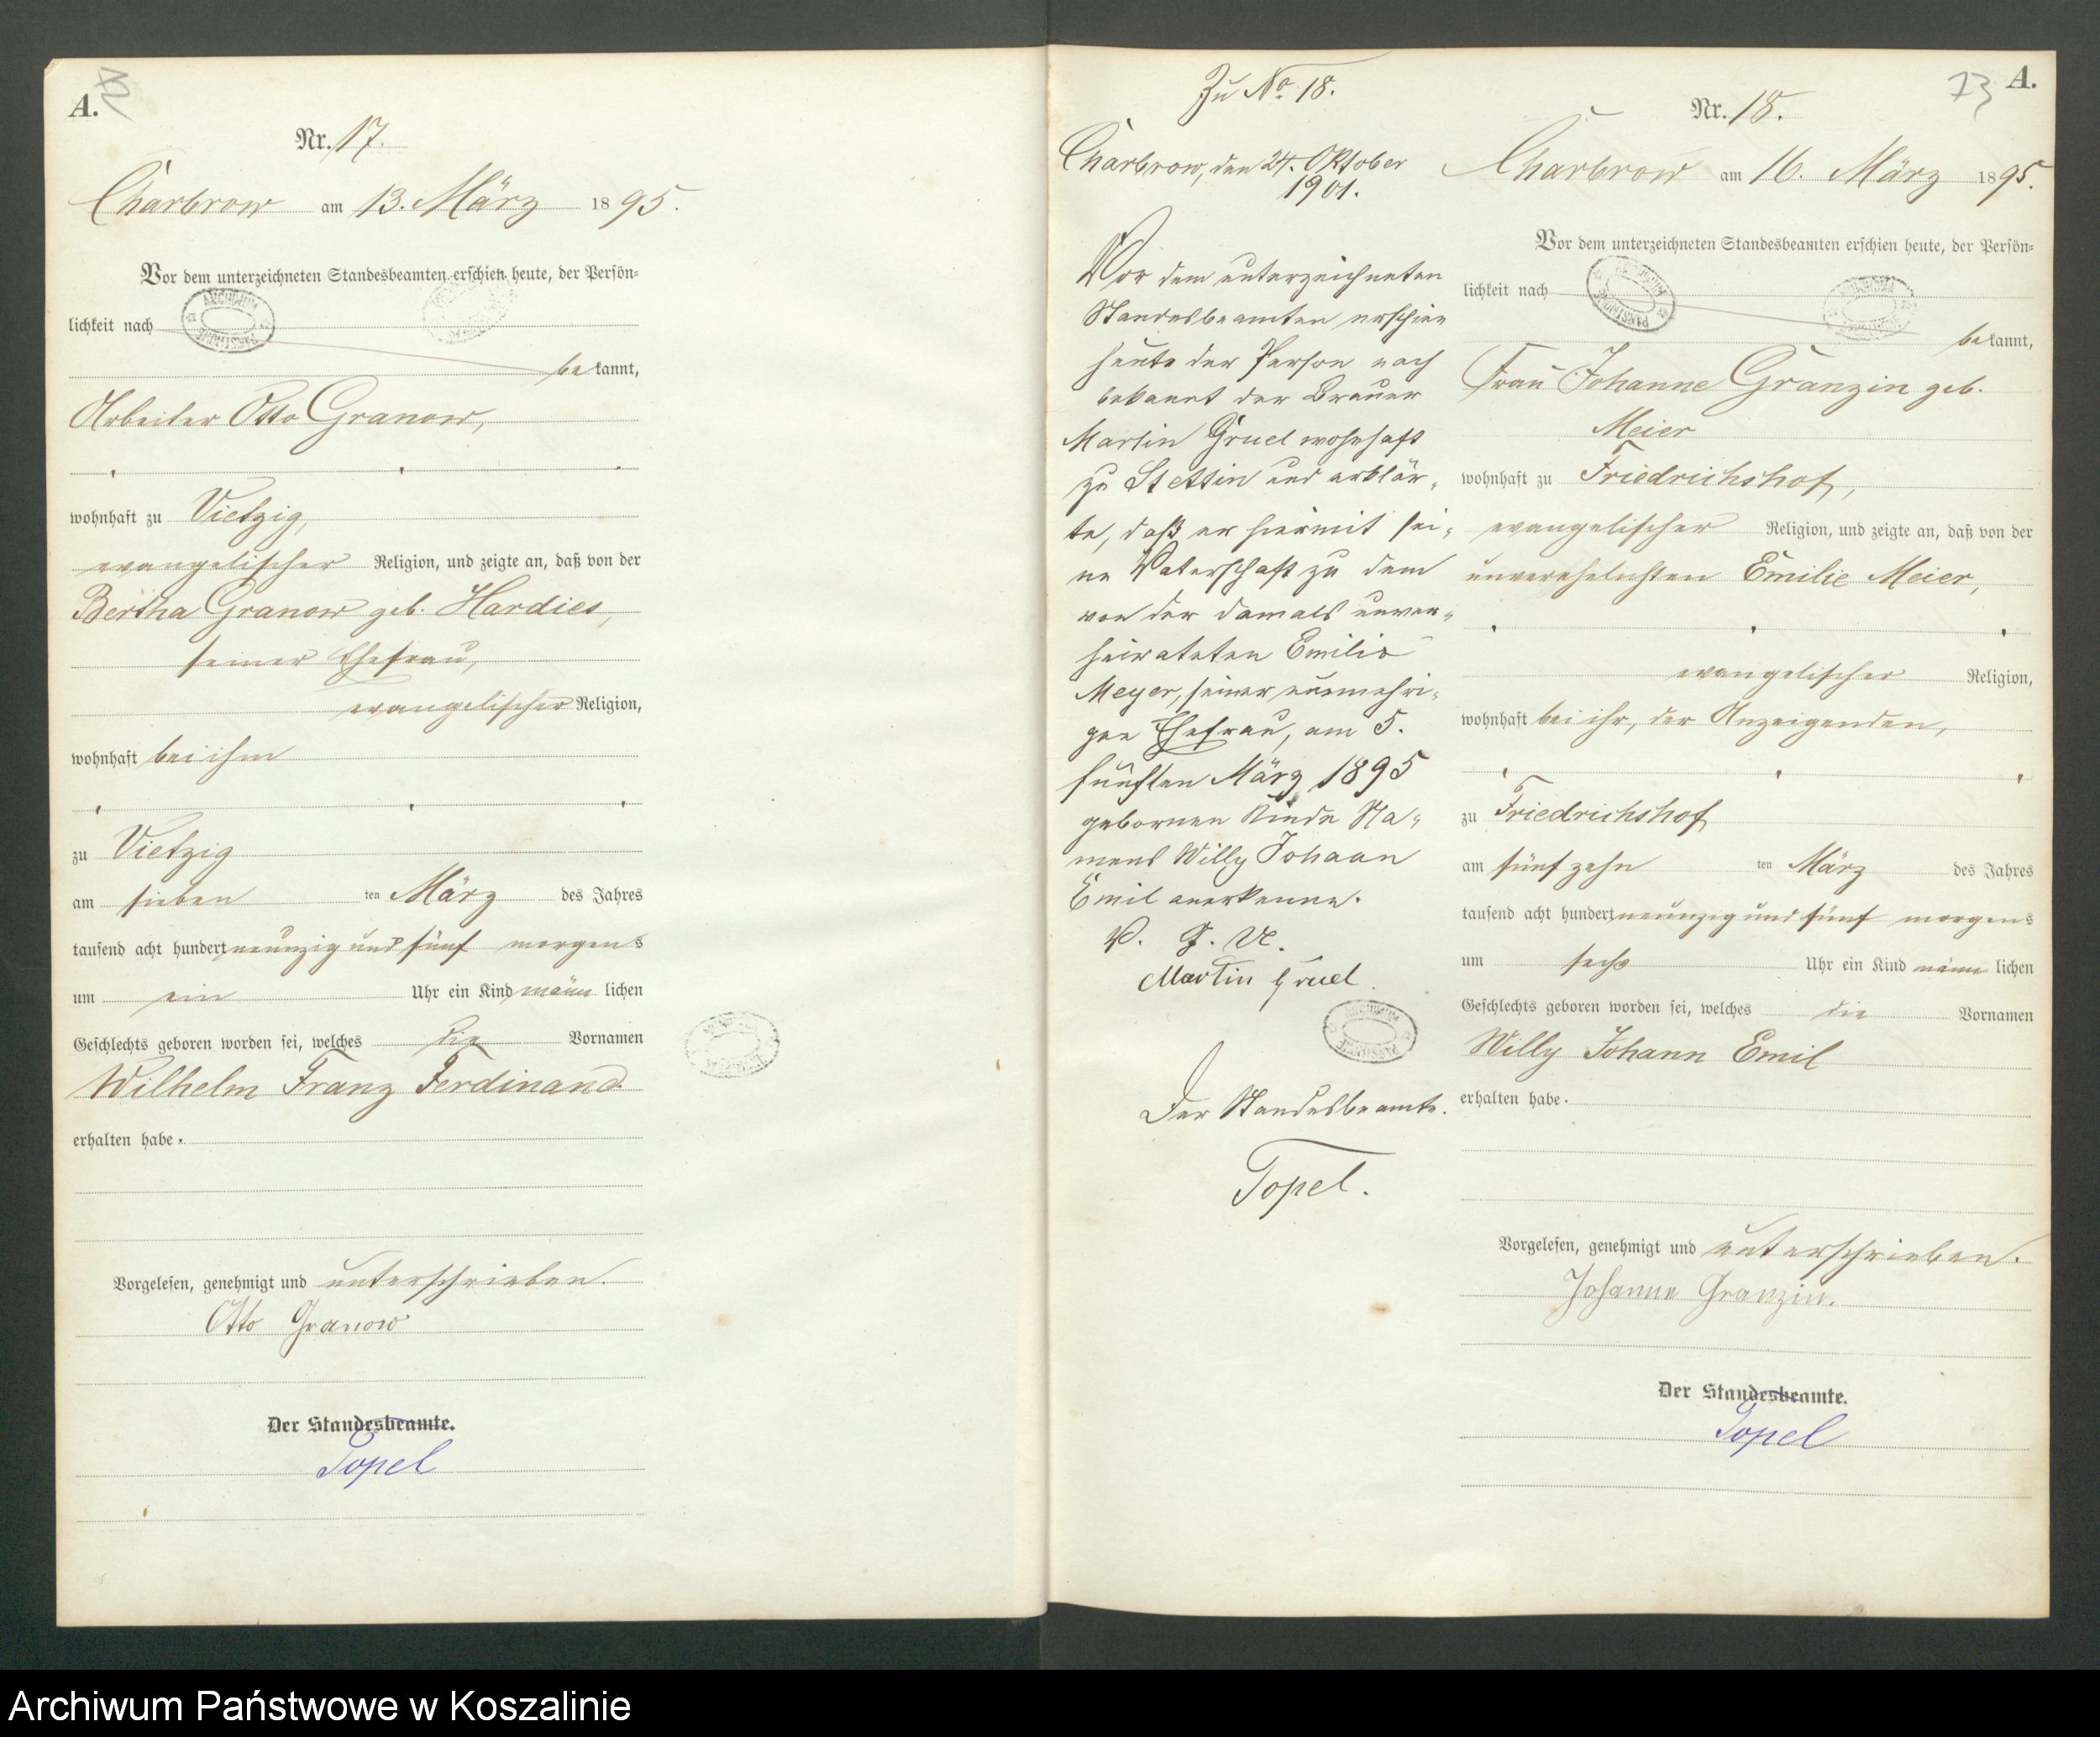 A.
Nr. 17.
Charbrow am 13. März 1895.
Vor dem unterzeichneten Standesbeamten erschien heute, der Persön-
lichkeit nach
bekannt,
Arbeiter Otto Granow,
wohnhaft zu Vietzig,
evangelischer Religion, und zeigte an, daß von der
Bertha Granow geb. Hardies,
seiner Ehefrau,
evangelischer Religion,
wohnhaft bei ihm
zu Vietzig
am sieben ten März des Jahres
tausend acht hundert neunzig und fünf morgens
um ein Uhr ein Kind männlichen
Geschlechts geboren worden sei, welches die Vornamen
Wilhelm Franz Ferdinand
erhalten habe.
Vorgelesen, genehmigt und unterschrieben.
Otto Granow
Der Standesbeamte.
Topel
Zu No. 18.
Charbrow, den 24. Oktober
1901.
Vor dem unterzeichneten
Standesbeamten erschien
heute der Person nach
bekannt der Brauer
Martin Gruel wohnhaft
zu Stettin und erklär-
te, daß er hiermit sei-
ne Vaterschaft zu dem
von der damals unver-
heirateten Emilie
Meyer, seiner nunmehri-
gen Ehefrau, am 5.
fünften März 1895
gebornen Kinde Na-
mens Willy Johann
Emil anerkenne.
V. G. U.
Martin Gruel.
Der Standesbeamte.
Topel.
73 A.
Nr. 18.
Charbrow am 16. März 1895.
Vor dem unterzeichneten Standesbeamten erschien heute, der Persön-
lichkeit nach
bekannt,
Frau Johanne Granzin geb.
Meier
wohnhaft zu Friedrichshof,
evangelischer Religion, und zeigte an, daß von der
unverehelichten Emilie Meier,
evangelischer Religion,
wohnhaft bei ihr, der Anzeigenden,
zu Friedrichshof
am fünfzehn ten März des Jahres
tausend acht hundert neunzig und fünf morgens
um sechs Uhr ein Kind männlichen
Geschlechts geboren worden sei, welches die Vornamen
Willy Johann Emil
erhalten habe.
Vorgelesen, genehmigt und unterschrieben.
Johanne Granzin.
Der Standesbeamte.
Topel
Archiwum Państwowe w Koszalinie